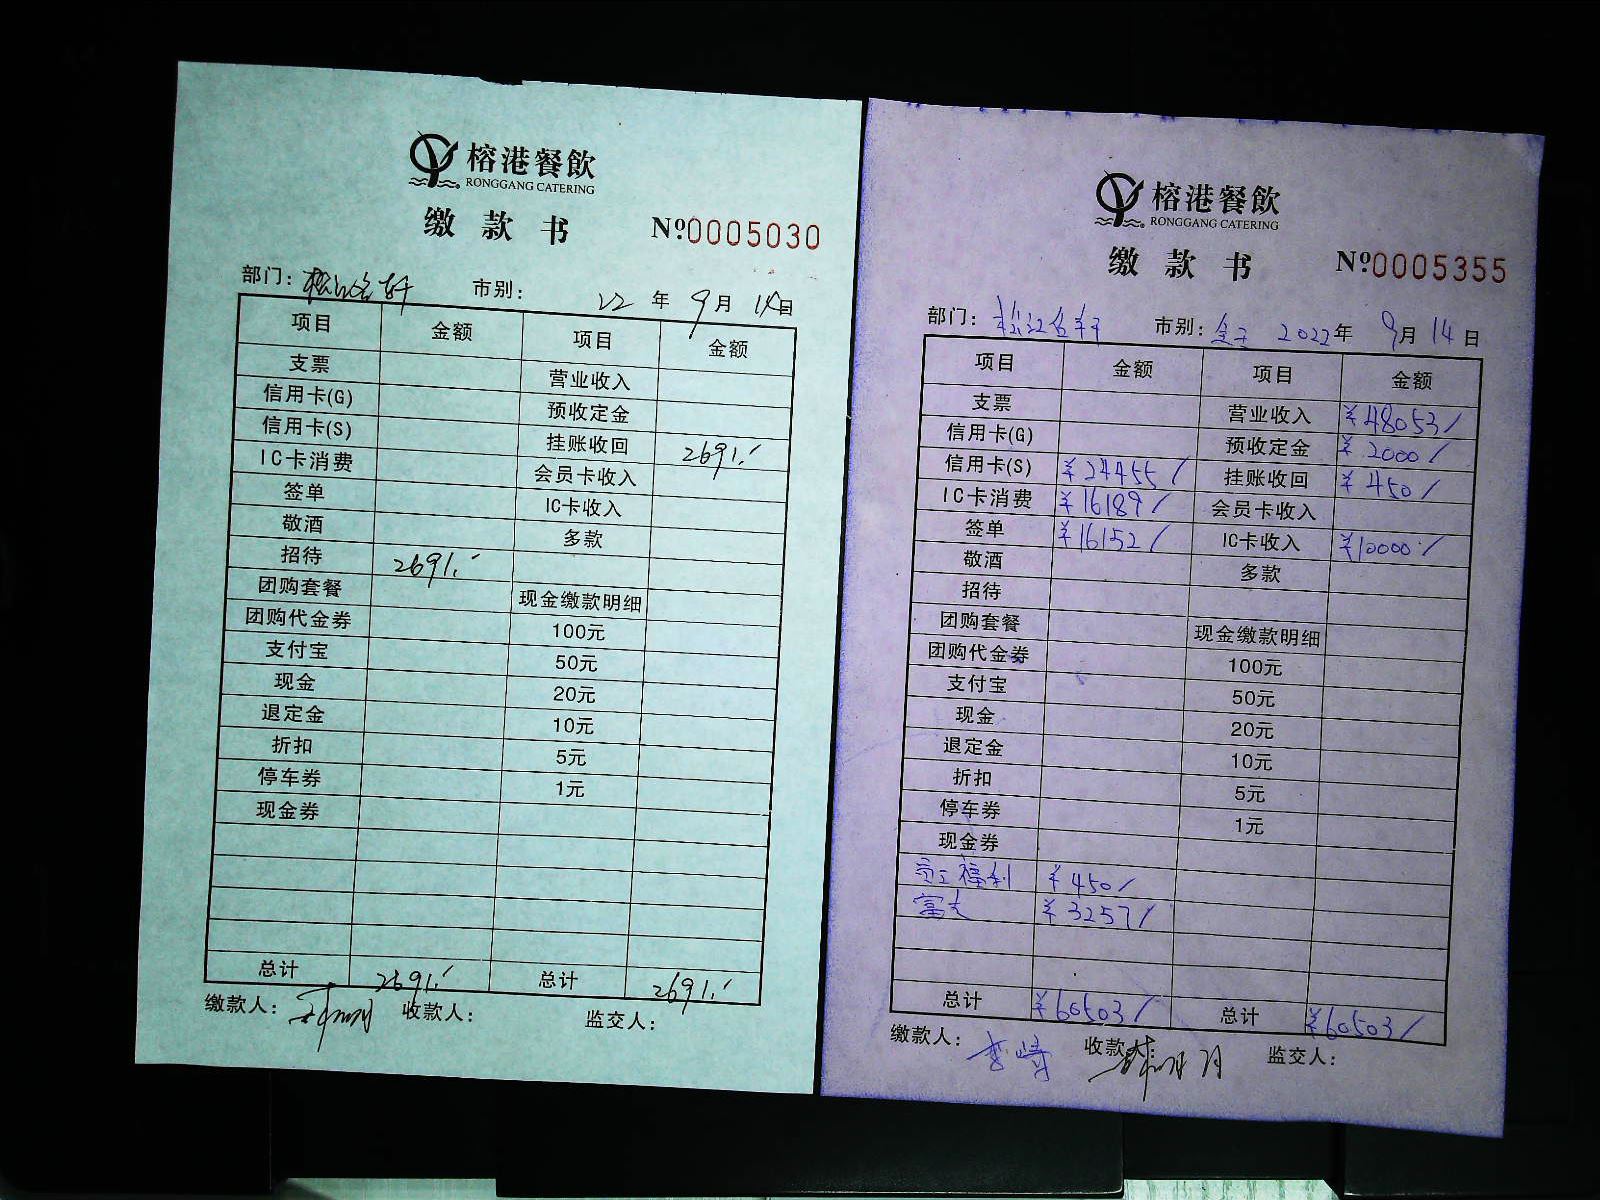 榕港餐飲
RONGGANG CATERING
缴款书
№0005030
部门：松江名轩 市别： 22年9月14日
项目 金额 项目 金额
支票 营业收入
信用卡(G) 预收定金
信用卡(S) 挂账收回 2691.-
IC卡消费 会员卡收入
签单 IC卡收入
敬酒 多款
招待 2691.-
团购套餐 现金缴款明细
团购代金券 100元
支付宝 50元
现金 20元
退定金 10元
折扣 5元
停车券 1元
现金券
总计 2691.- 总计 2691.-
缴款人： 收款人： 监交人：
榕港餐飲
RONGGANG CATERING
缴款书
№0005355
部门：松江名轩 市别：全天 2022年9月14日
项目 金额 项目 金额
支票 营业收入 ¥48053/
信用卡(G) 预收定金 ¥2000/
信用卡(S) ¥24455/ 挂账收回 ¥450/
IC卡消费 ¥16189/ 会员卡收入
签单 ¥16152/ IC卡收入 ¥10000/
敬酒 多款
招待
团购套餐 现金缴款明细
团购代金券 100元
支付宝 50元
现金 20元
退定金 10元
折扣 5元
停车券 1元
现金券
员工福利 ¥450/
富友 ¥3257/
总计 ¥60503/ 总计 ¥60503/
缴款人： 收款人： 监交人：